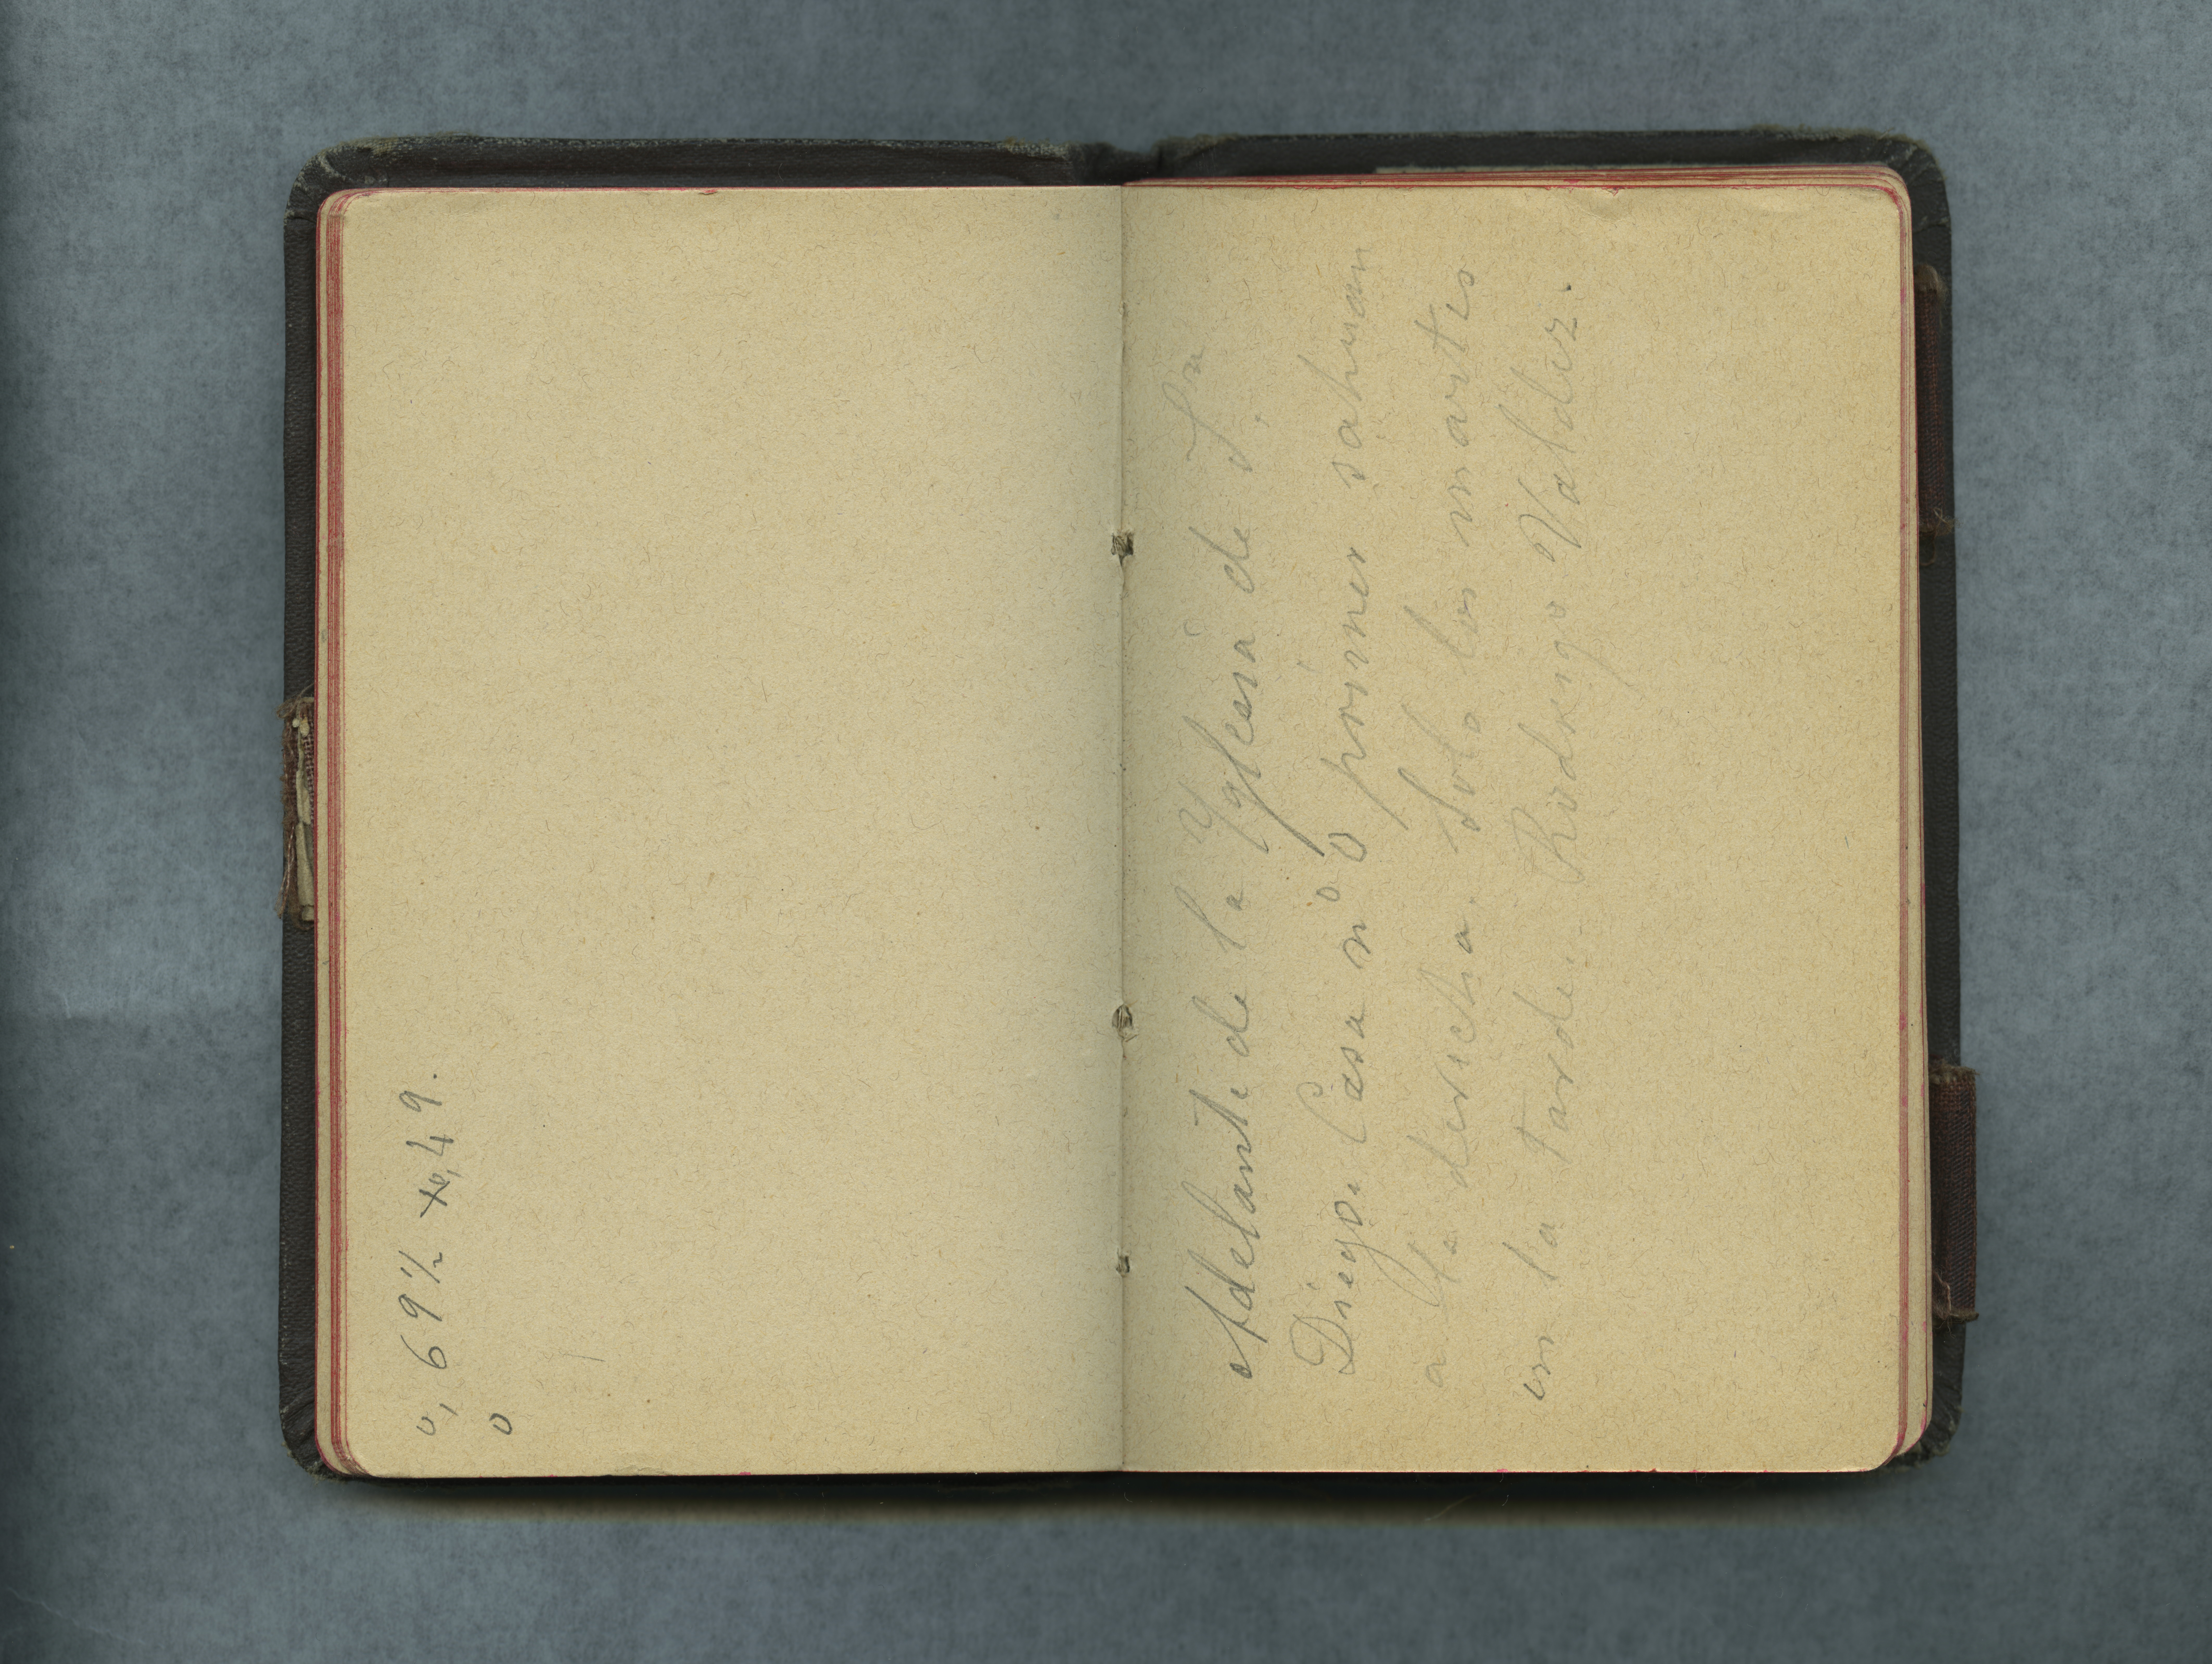 0,69½ x0,49.
0
Adelante de la Yglesia de Sn
Diego. Casa nº 0 primer sahuan
a la derecha. Solo los martes
en la tarde. Rodrigo Valdez.